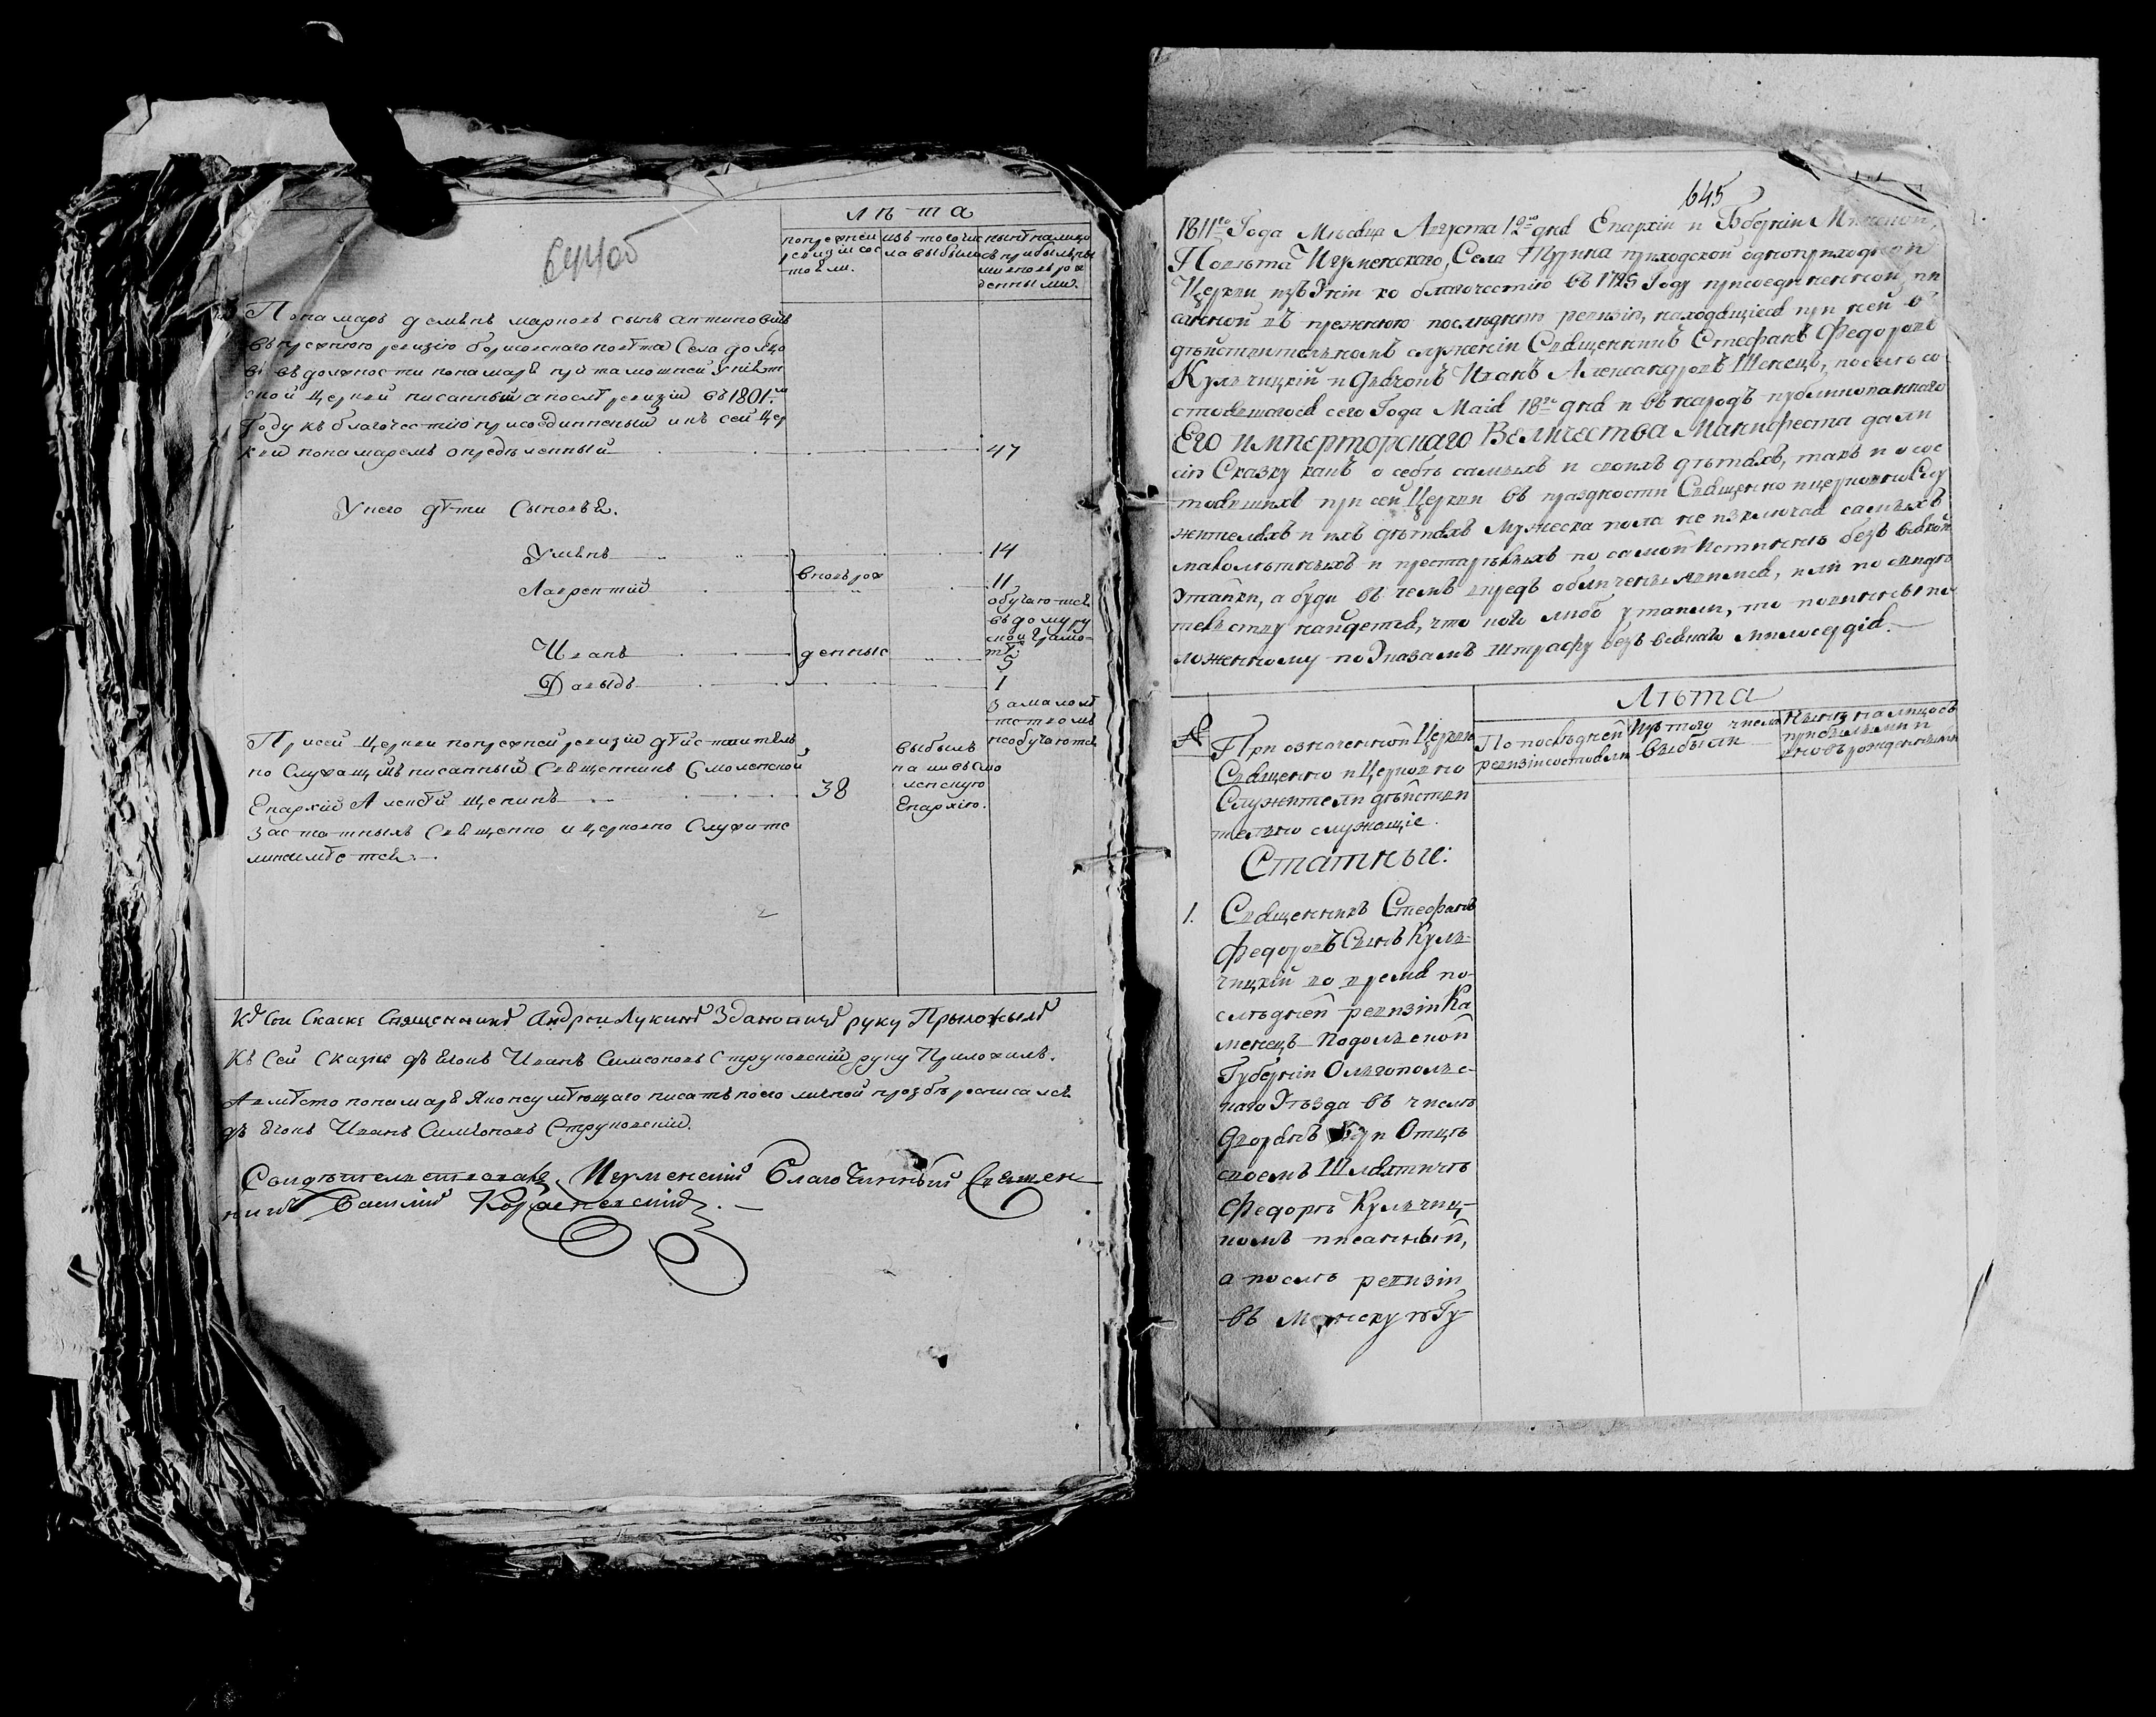 644об
Лѣта
попрежней ревизіи состояли.
изъ того числа выбыло
нынѣ на лицо съ прибылыми и вновь рожденными.
Понамарь Демьянъ Марковъ сынъ Антиповичъ
въ прежнюю ревизію борисовскаго повѣта Села
въ должности понамаря при тамошней Уніят
ской Церкви писанный а послѣ ревизіи въ 1801.мъ
Году къ благочестію присоединенный и къ сей Цер
кви понамаремъ опредѣленный 47
У него дѣти Сыновья.
14
Лаврентій вновь рож 11
обучаются
въ дому ру
ской Грамо-
тѣ
Иванъ денные 5
Давыдъ 1
за малолѣ
тствомъ
необучаются
При сей Церкви попрежней ревизіи дѣйствитель
но Служащимъ писанный Священникъ Смоленской
Епархіи Алексѣй Щепинъ 38
выбылъ
паки въ Смо
ленскую
Епархію.
Застатныхъ Священно и церковно Служите
лей неимѣется.
Къ Сеи Скаске Священникъ Андреи Лукинъ Здановичъ руку Прыложылъ
Къ Сей Сказкѣ дьячокъ Иванъ Симеоновъ Струковскій руку Приложилъ.
А вмѣсто понамаря Яко неумѣющаго писать по его личной прозбѣ росписался
дьячокъ Иванъ Симіоновъ Струковскій.
Свидѣтельствовалъ Игуменскій Благочинный Священ
никъ Василій
645
1811го Года Мѣсяца Августа 12го дня Епархіи и Губерніи Минской,
Повѣта Игуменскаго, Села Турина приходской одноприходской
Церкви изъ Уніи ко благочестію въ 1795 Году присоединенной, пи
санной въ прежнюю послѣднюю ревизію, находящіеся при ней въ
дѣйствительномъ служеніи Священникъ Стефанъ Федоровъ
Кульчицкій и Дьячокъ Иванъ Александровъ Шенецъ, по силѣ со
стоявшагося сего Года Маія 18го дня и въ народъ публикованнаго
Его Имперторскаго Величества Манифеста дали
сію Сказку какъ о себѣ самыхъ и своихъ дѣтяхъ, такъ и о сос
тоявшихъ при сей Церкви въ праздности Священно и церковно Слу
жителяхъ и ихъ дѣтяхъ мужеска пола не изключая самыхъ
малолѣтныхъ и престарѣлыхъ по самой истиннѣ безъ всякой
утайки, а буди въ чемъ впредь обличены явимся, или по свидѣ
тельству найдется, что кого либо утаили, то повинны по
ложенному по Указамъ Штрафу безъ всякаго милосердія.
Лѣта
№
При означенной Церкви
Священно и Церковно
Служители дѣйстви
тельно служащіе.
По послѣдней ревизіи состояли
Изъ того числа выбыли
Нынѣ на лицо съ прибылыми и вновь рожденными
Статные:
1. Священникъ Стефанъ
Федоровъ Сынъ Куль-
чицкій во время по-
слѣдней ревизіи Ка
менецъ-Подольской
Губерніи Ольгопольс-
каго Уѣзда въ числѣ
Дворянъ при Отцѣ
своемъ Шляхтичѣ
Федорѣ Кульчиц-
комъ писанный,
а послѣ ревизіи
въ Минскую Гу-